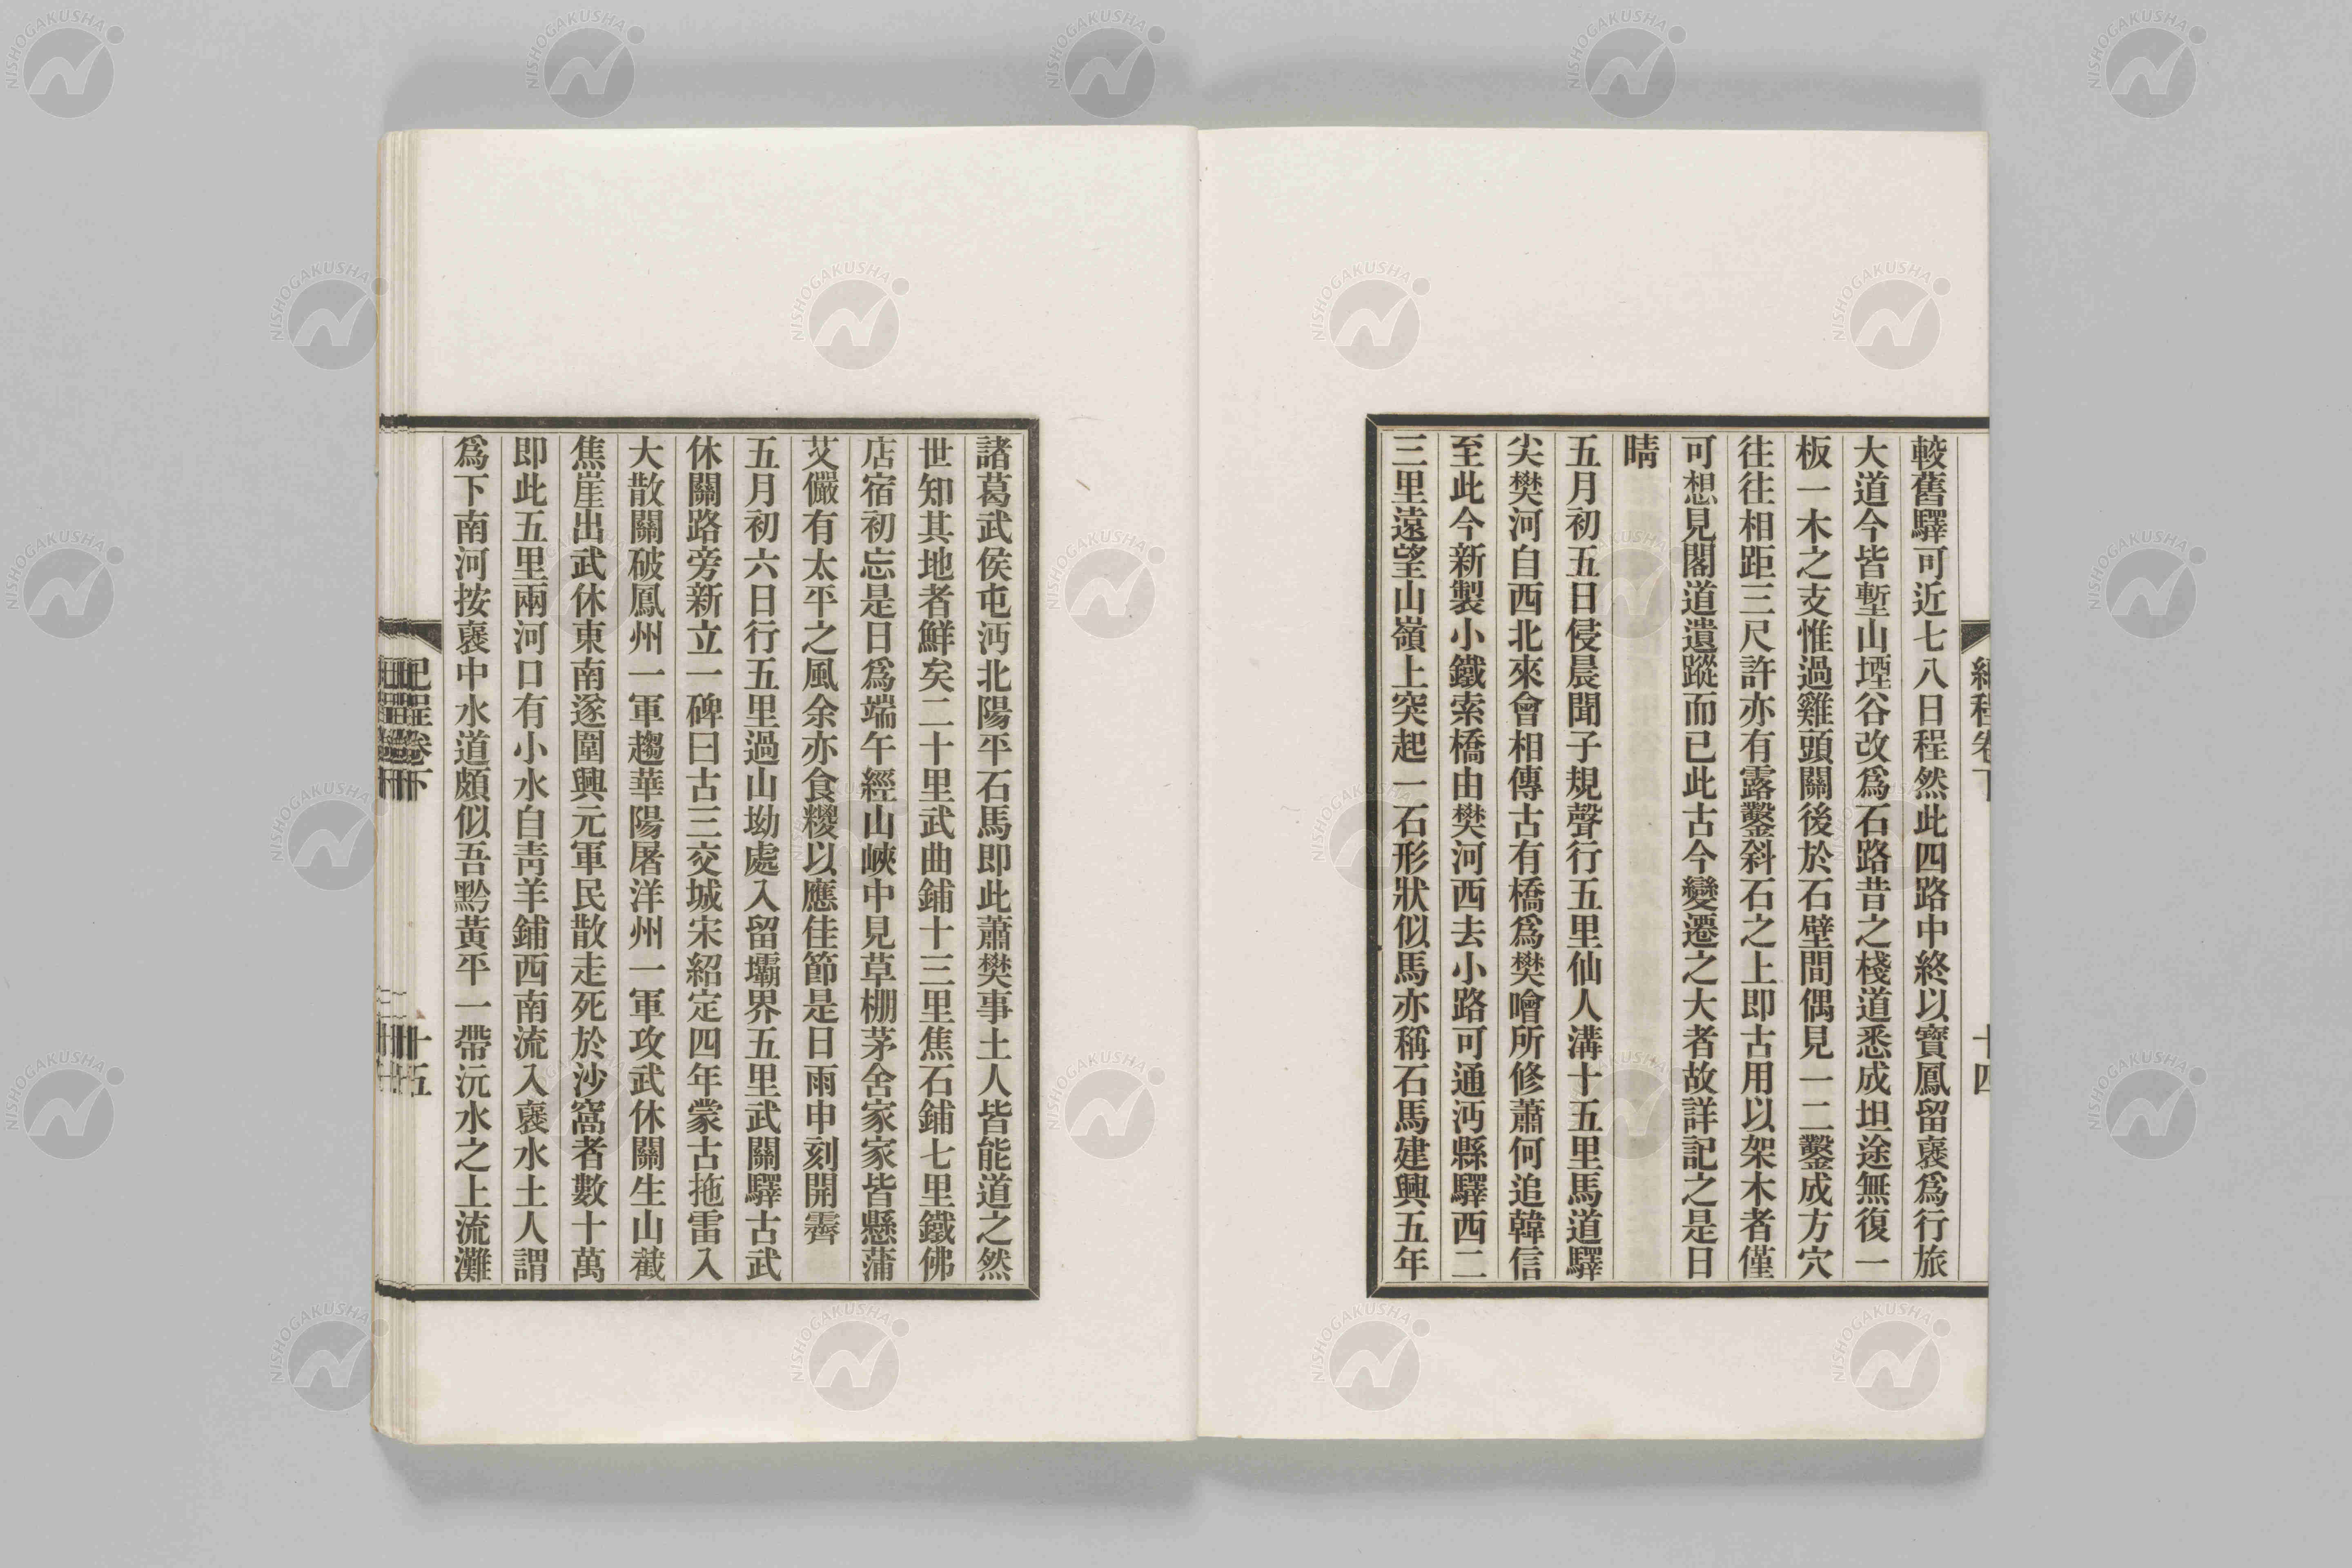 較舊驛可近七八日程然此四路中終以寶鳳留襃爲行旅
大道今皆塹山堙谷改爲石路昔之棧道悉成坦途無復一
板一木之支惟過雞頭關後於石壁間偶見一二鑿成方穴
往往相距三尺許亦有露鑿斜石之上即古用以架木者僅
可想見閣道遺蹤而已此古今變遷之大者故詳記之是日
晴
五月初五日侵晨聞子規聲行五里仙人溝十五里馬道驛
尖樊河自西北來會相傳古有橋爲樊噲所修蕭何追韓信
至此今新製小鐵索橋由樊河西去小路可通沔縣驛西二
三里遠望山嶺上突起一石形狀似馬亦稱石馬建興五年
諸葛武侯屯沔北陽平石馬即此蕭樊事土人皆能道之然
世知其地者鮮矣二十里武曲鋪十三里焦石鋪七里鐵佛
店宿初忘是日爲端午經山峽中見草棚茅舍家家皆懸蒲
艾儼有太平之風余亦食糭以應佳節是日雨申刻開霽
五月初六日行五里過山坳處入留壩界五里武關驛古武
休關路旁新立一碑曰古三交城宋紹定四年蒙古拖雷入
大散關破鳳州一軍趨華陽屠洋州一軍攻武休關生山截
焦崖出武休東南遂圍興元軍民散走死於沙窩者數十萬
即此五里兩河口有小水自靑羊鋪西南流入襃水土人謂
爲下南河按襃中水道頗似吾黔黃平一帶沅水之上流灘
紀程卷下
十五
程卷下
十四
NISHOGAKUSHA